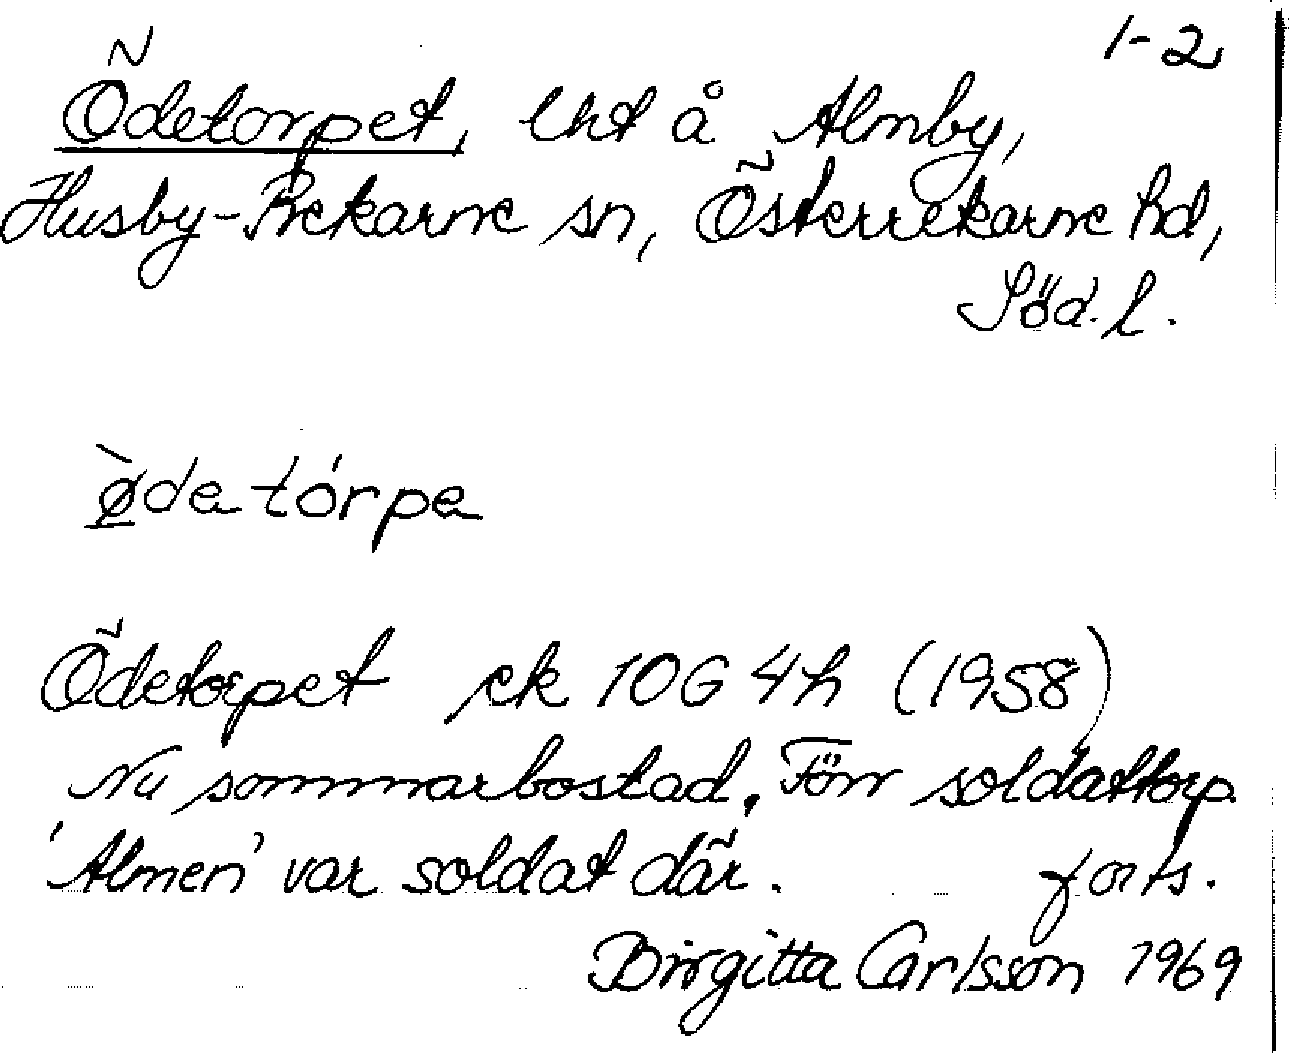 1-2
Ödetorpet, lht å Almby,
Husby-Rekarne sn, Österrekarne hd,
Söd. l.
ø̱̀de tórpe
Ödetorpet ek 10G 4h (1958)
Nu sommarbostad. Förr soldattorp.
'Almen' var soldat där. forts.
Birgitta Carlsson 1969